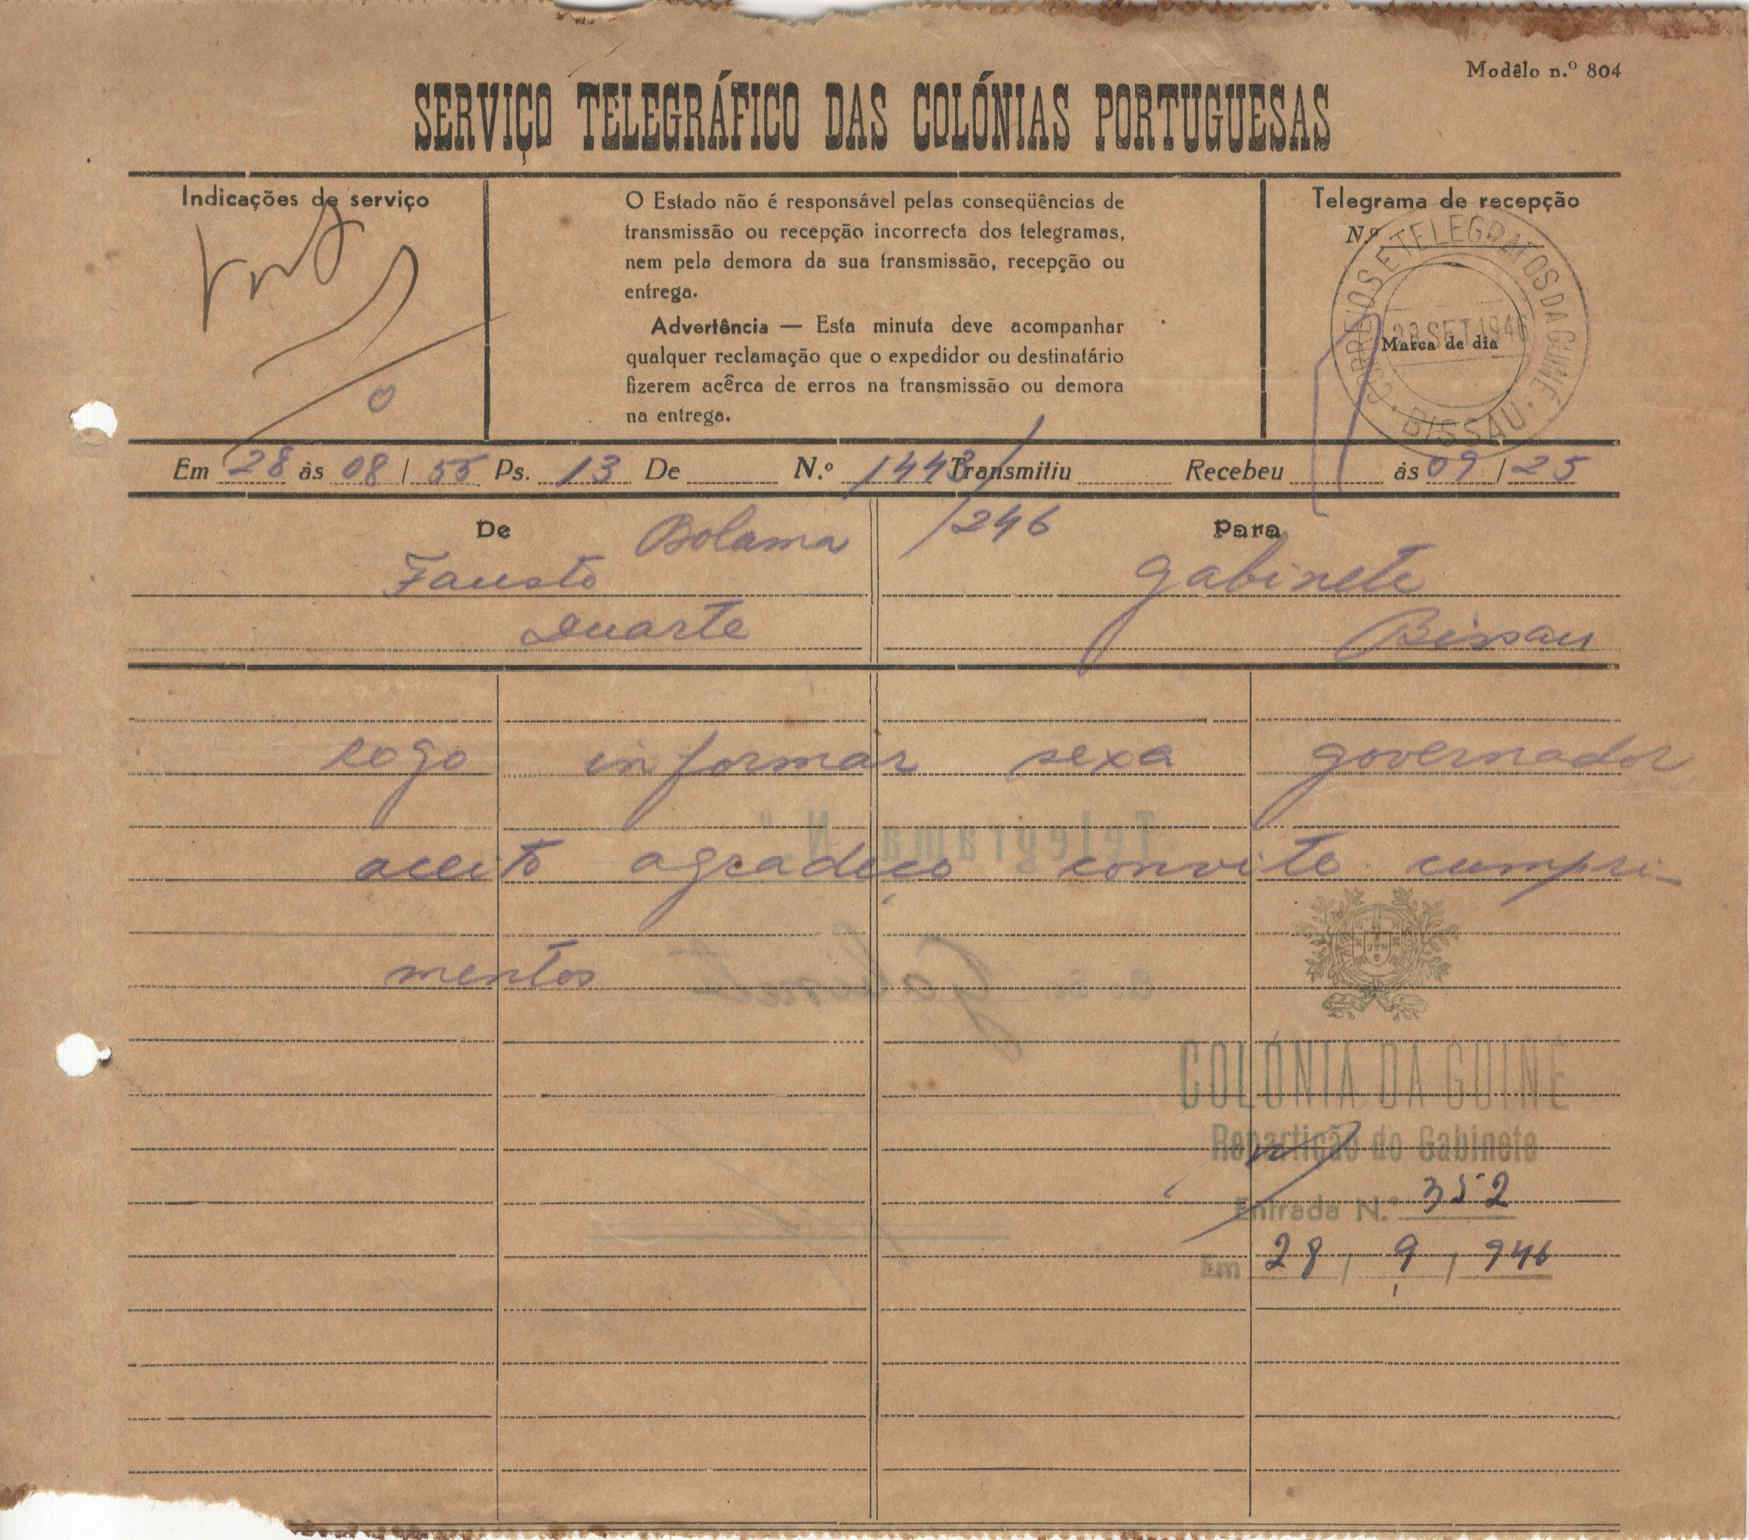 Modêlo n.º 804
SERVIÇO TELEGRÁFICO DAS COLÓNIAS PORTUGUESAS
Indicações de serviço
O Estado não é responsável pelas conseqüências de
transmissão ou recepção incorrecta dos telegramas,
nem pela demora da sua transmissão, recepção ou
entrega.
Advertência — Esta minuta deve acompanhar
qualquer reclamação que o expedidor ou destinatário
fizerem acêrca de erros na transmissão ou demora
na entrega.
Telegrama de recepção
N.º
CORREIOS E TELEGRAFOS DA GUINÉ
28 SET 1946
Marca de dia
BISSAU
Em 28 às 08 / 55 Ps. 13 De N.º 1443/ Transmitiu Recebeu às 09 / 25
/246
De Bolama
Fausto
Duarte
Para
Gabinete
Bissau
rogo informar sexa governador
aceito agradeço convite cumpri-
mentos
Telegrama N.º
Gabinete
COLÓNIA DA GUINÉ
Repartição do Gabinete
Entrada N.º 352
Em 28 / 9 / 946